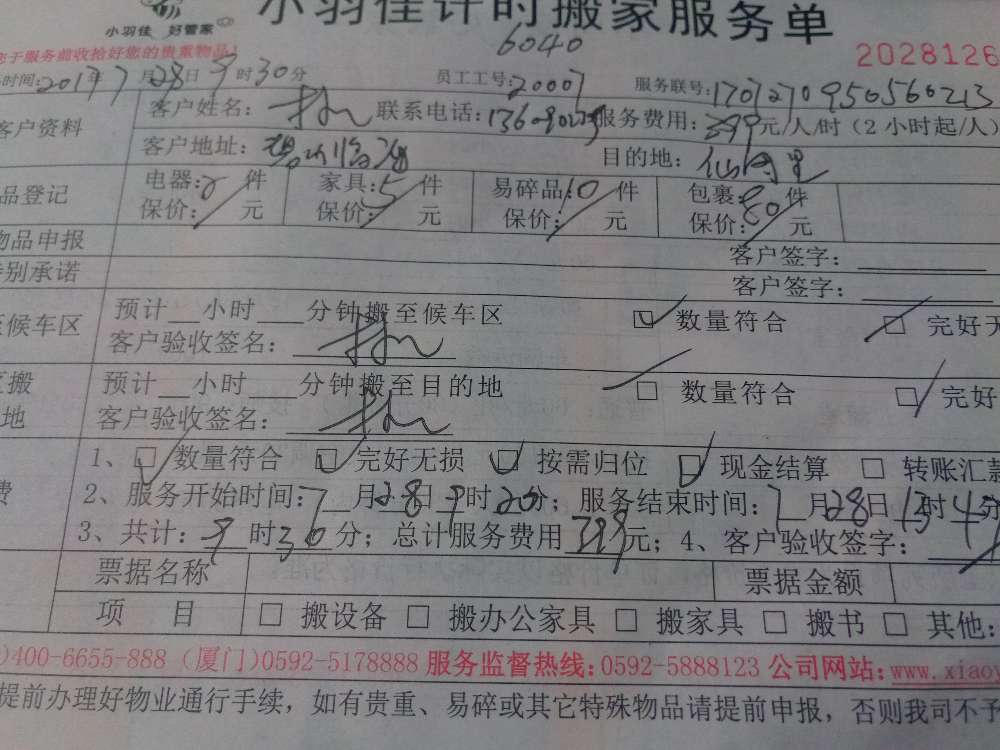 小羽佳 好管家
小羽佳计时搬家服务单
您于服务前收拾好您的贵重物品!
6040
2028126
时间:2017年7月28日9时30分 员工工号:20007 服务联号:17072709505560213
客户资料 客户姓名: 联系电话: 服务费用:399元/人/时(2小时起/人)
客户地址: 目的地:仙阁里
品登记 电器:2件 家具:5件 易碎品:10件 包裹:80件
保价: 元 保价: 元 保价: 元 保价: 元
物品申报 客户签字:
特别承诺 客户签字:
至候车区 预计 小时 分钟搬至候车区 数量符合 完好无
客户验收签名:
搬 预计 小时 分钟搬至目的地 数量符合 完好
地 客户验收签名:
1、 数量符合 完好无损 按需归位 现金结算 转账汇款
费 2、服务开始时间:7月28日9时20分;服务结束时间:7月28日13时4分
3、共计:9时30分;总计服务费用399元;4、客户验收签字:
票据名称 票据金额
项 目 搬设备 搬办公家具 搬家具 搬书 其他:
)400-6655-888 (厦门)0592-5178888 服务监督热线:0592-5888123 公司网站:www.xiaoy
提前办理好物业通行手续,如有贵重、易碎或其它特殊物品请提前申报,否则我司不予